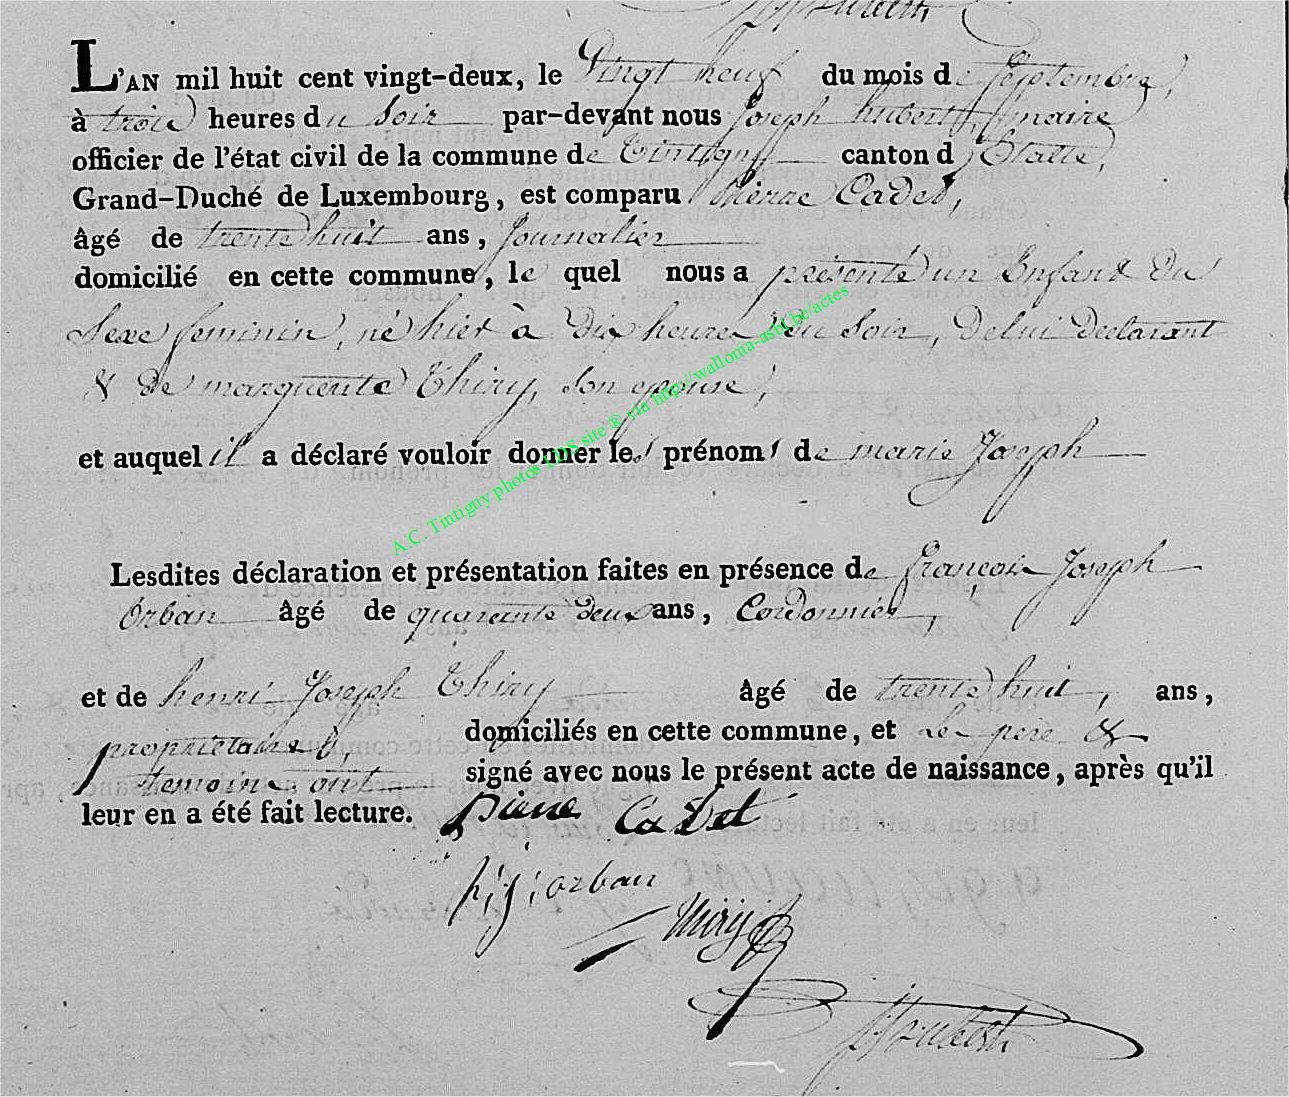 J Hubert
L'AN mil huit cent vingt-deux, le Vingt neuf du mois de Septembre,
à trois heures du Soir par-devant nous Joseph hubert, maire
officier de l'état civil de la commune de Tintigny canton d'Etalle,
Grand-Duché de Luxembourg, est comparu Pierre Cadet,
âgé de trente huit ans, Journalier
domicilié en cette commune, le quel nous a présenté un Enfant Du
Sexe feminin, né hier à Dix heures du Soir, De lui Declarant
& De marguerite Thiry, Son epouse,
et auquel il a déclaré vouloir donner les prénoms de marie Joseph
A.C. Tintigny photos LDS site ® via http://wallonia-asbl.be/actes
Lesdites déclaration et présentation faites en présence de françois Joseph
Orban âgé de quarante Deux ans, Cordonnier,
et de henri Joseph Thiry âgé de trente huit, ans,
propriétaire, domiciliés en cette commune, et Le pere &
temoins ont signé avec nous le présent acte de naissance, après qu'il
leur en a été fait lecture. Pierre Cadet
f: j: orban
thiry
J Hubert